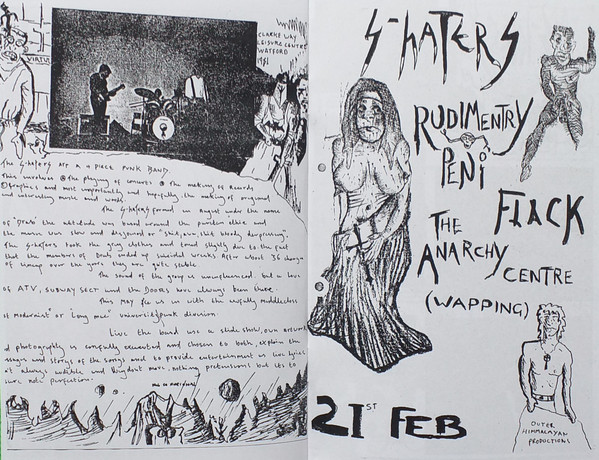 VIRTUS
CLARKE WAY
LEISURE CENTRE
WATFORD
1981
The S-HATERS ARE A 4 PIECE PUNK BAND.
This involves the playing of concerts the making of Records
Graphics and most importantly and hopefully the making of original
and interesting music and words.
The S-HATERS formed in August under the name
of the attitude was based around the punk ethic and
the music was slow and
The S-haters took the grey clothes and tones slightly due to the fact
that the members of ended up suicidal wrecks. After about 36 changes
of lineup over the years they are quite stable.
The sound of the group is uninfluenced. but a love
of ATV, SUBWAY SECT and the DOORS have always been there.
This may fix us in with the awfully middleclass
"modernist" or "Long mac" division.
Live the band use a slide show, own artwork
photography is carefully executed and chosen to both explain the
and of the songs and to provide entertainment as live lyrics
always audible and nothing pretensious but its to
not perfection.
S-HATERS
RUDIMENTRY
PENI
FLACK
THE
ANARCHY
CENTRE
(WAPPING)
21ST FEB
OUTER
HIMMALAYAN
PRODUCTIONS